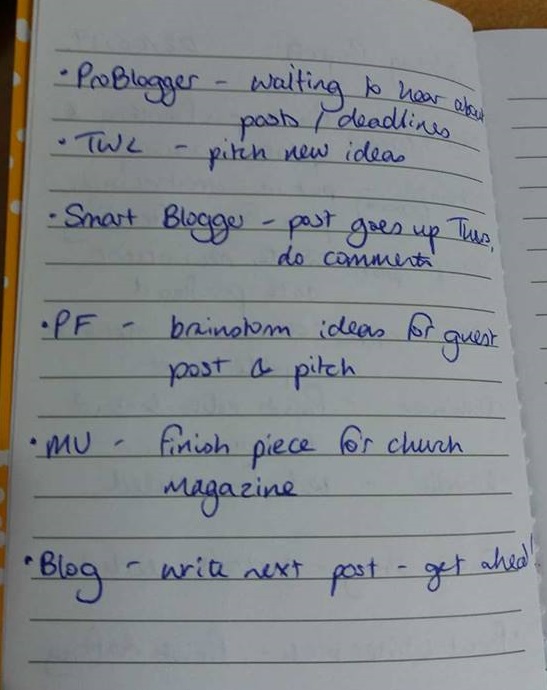 · ProBlogger - waiting to hear about
posts / deadlines
· TWL - pitch new ideas
· Smart Blogger - post goes up Tues,
do comments
· PF - brainstorm ideas for guest
post & pitch
· MU - finish piece for church
magazine
· Blog - write next post - get ahead!